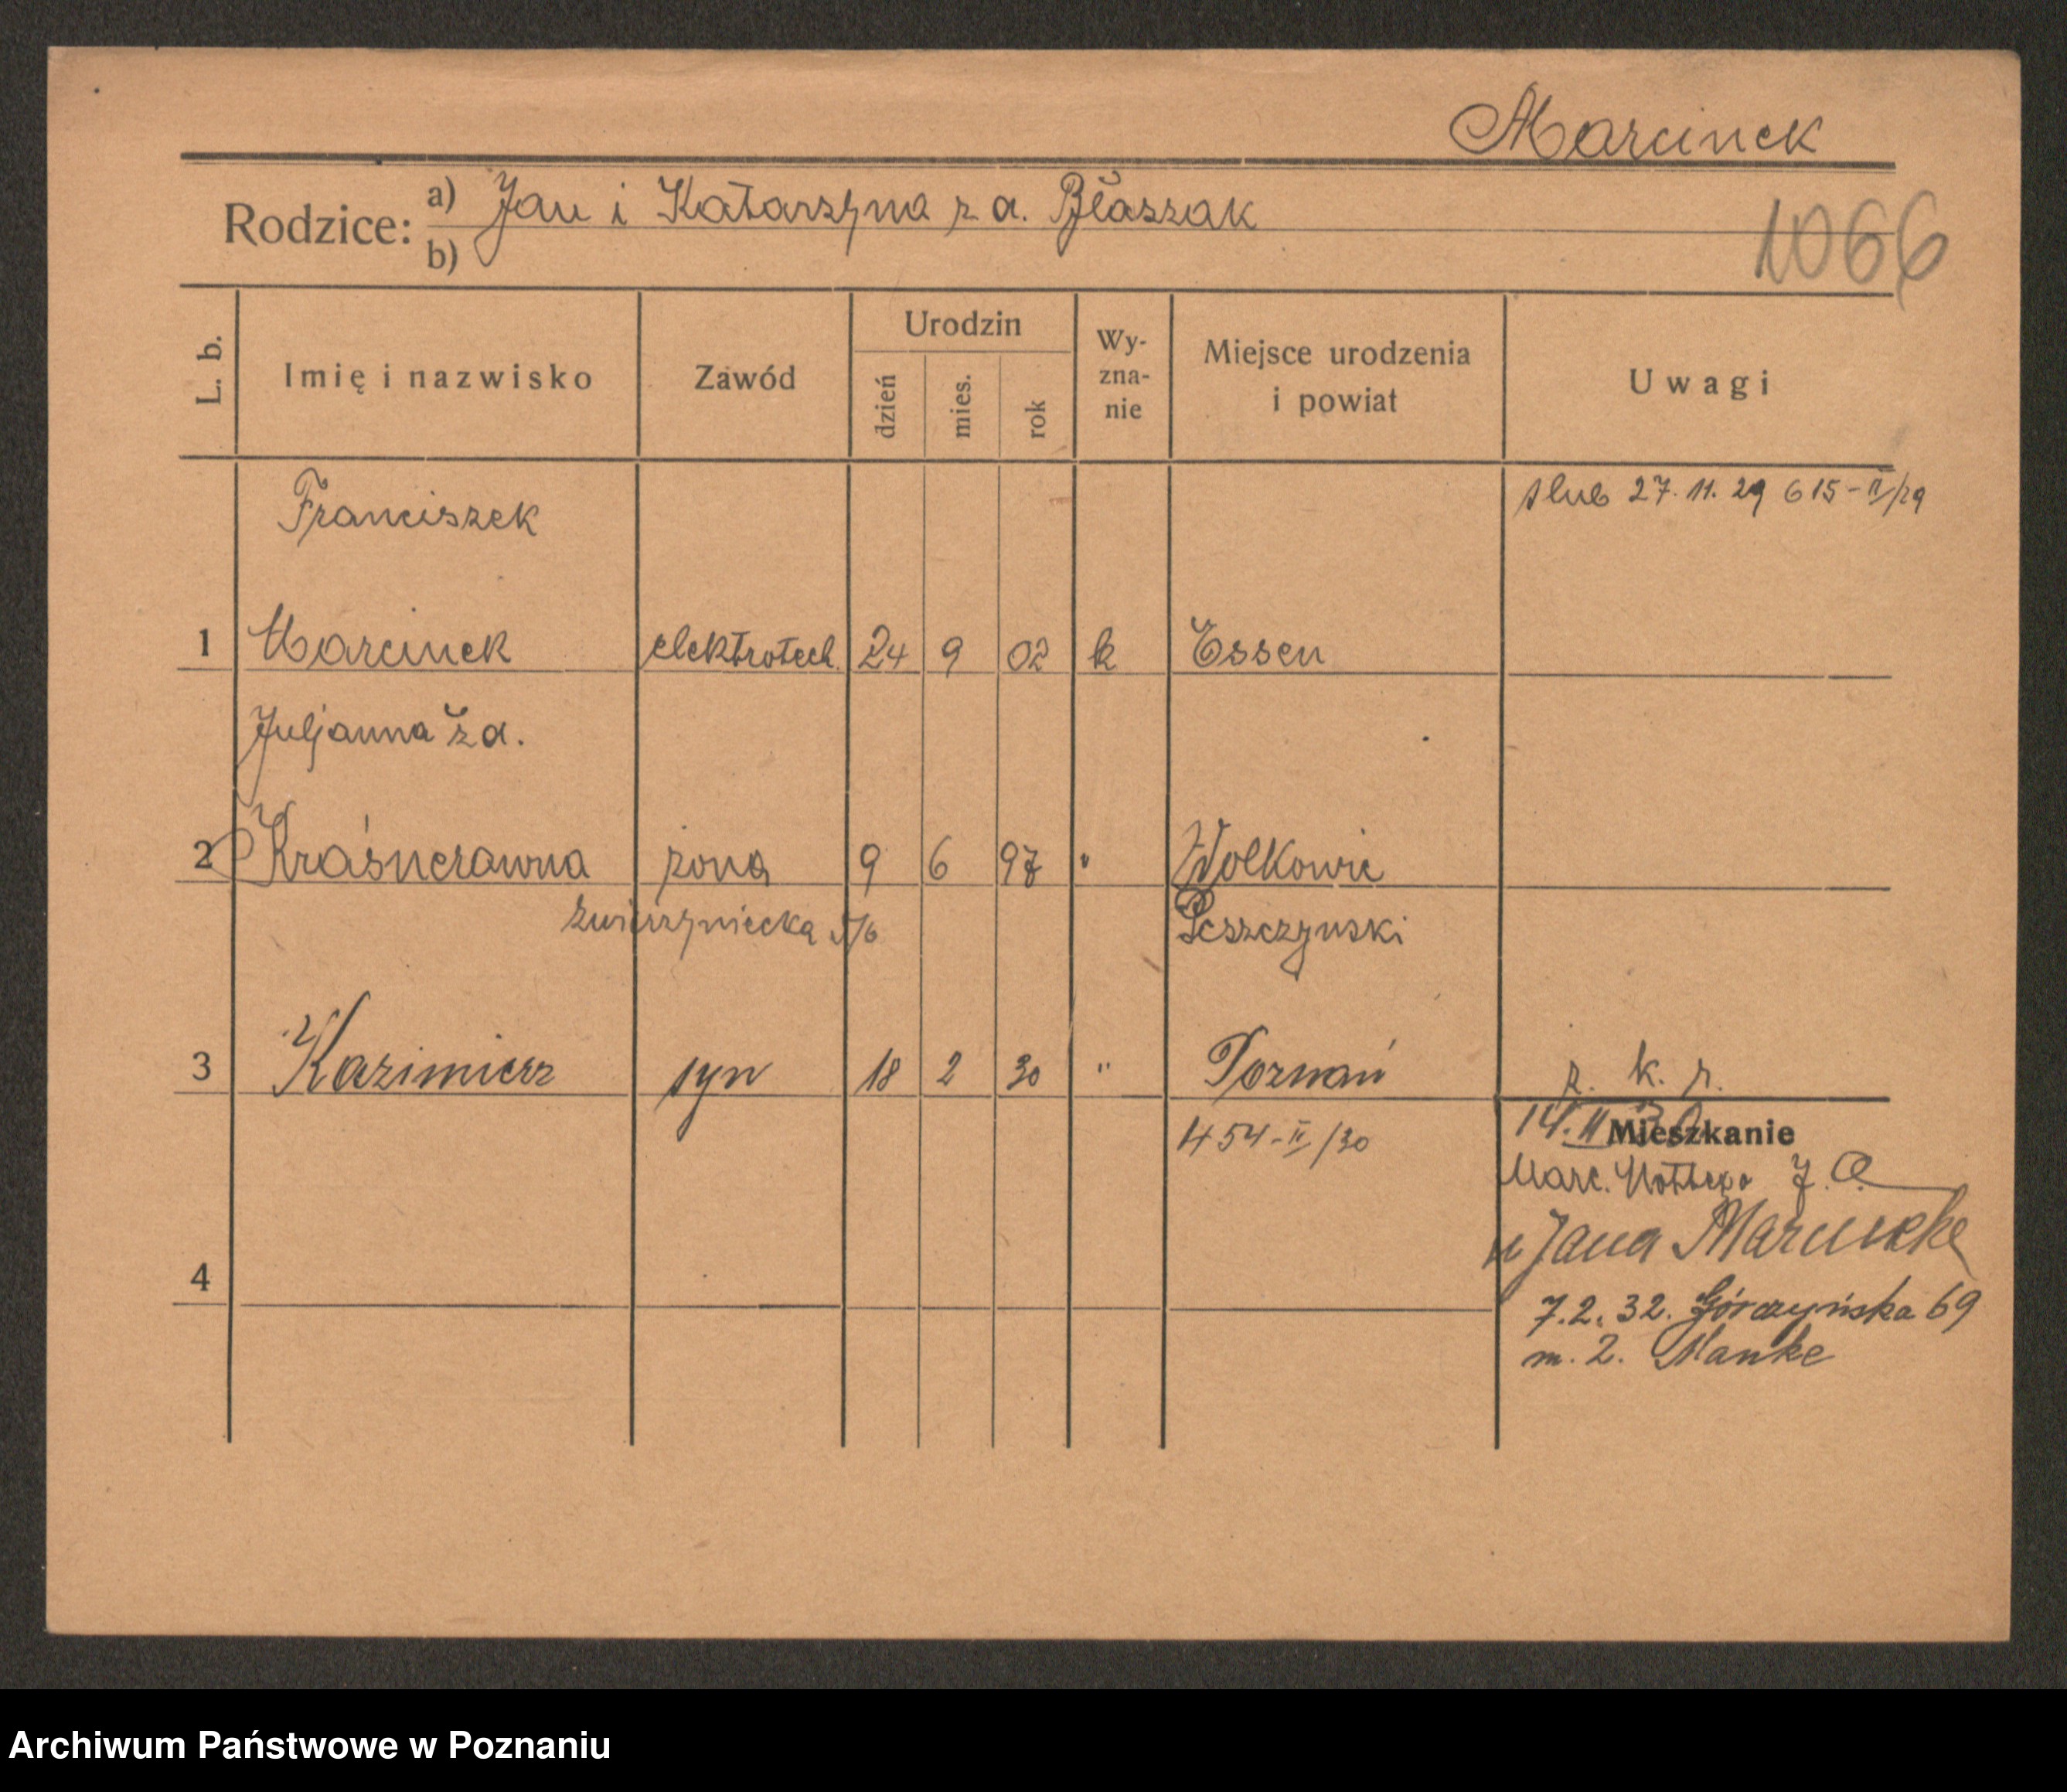 Marcinek
Rodzice: a) Jan i Katarzyna z d. Błaszak
b)
1066
L. b. Imię i nazwisko Zawód Urodzin dzień mies. rok Wy-zna-nie Miejsce urodzenia i powiat Uwagi
Franciszek ślub 27. 11. 29 615-II/29
1 Marcinek elektrotech. 24 9 02 k Essen
Juljanna z d.
2 Kraśnerawna żona 9 6 97 " Wolkowie
Zwierzyniecka Peszczyński
3 Kazimierz syn 18 2 30 " Poznań
z. k. r.
454-II/30
14. II
Mieszkanie
Marc.
u Jana Marcinka
4
7. 2. 32. Górczyńska 69
m. 2. Manke
Archiwum Państwowe w Poznaniu